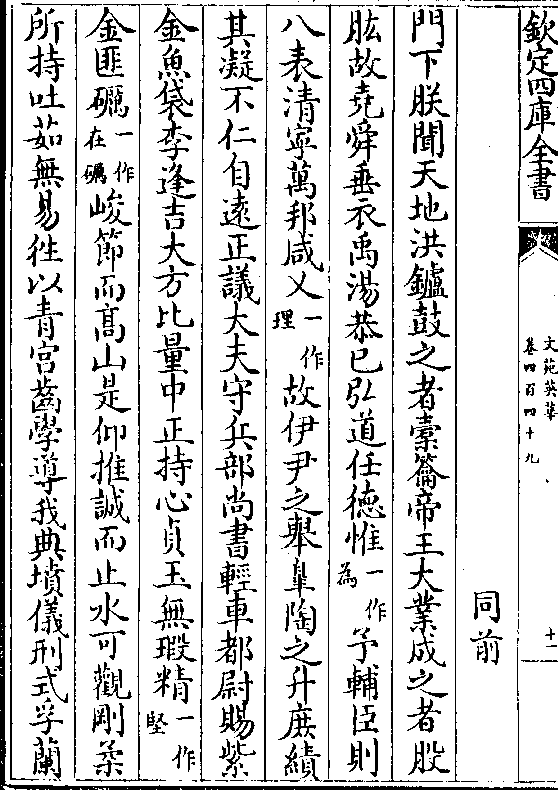 欽定四庫全書
文苑英華
卷四百四十九
十一
同前
門下朕聞天地洪鑪鼓之者橐籥帝王大業成之者股
肱故堯舜垂衣禹湯恭已弘道任徳惟一作為予輔臣則
八表清寧萬邦咸乂一作理故伊尹之舉臯陶之升庶績
其凝不仁自逺正議大夫守兵部尚書輕車都尉賜紫
金魚袋李逢吉大方比量中正持心貞玉無瑕精一作堅
金匪礪一作在礪峻節而髙山是仰推誠而止水可觀剛柔
所持吐茹無易徃以青宫齒學導我典墳儀刑式孚蘭